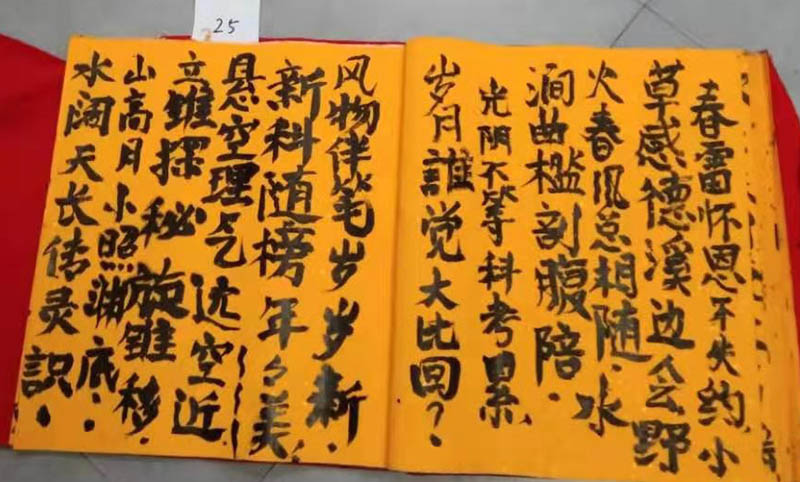 春雷怀恩年失约，小
草感德溪边会野
火春风总相随．水
涧曲槛剖腹陪．
光阴不等科考累．
岁月誰觉大比回？
风物伴笔岁岁新．
新科随榜年々美．
悬空理气远空近
立雏探秘旋雏移．
山高月小照渊底．
水阔天长传灵識．